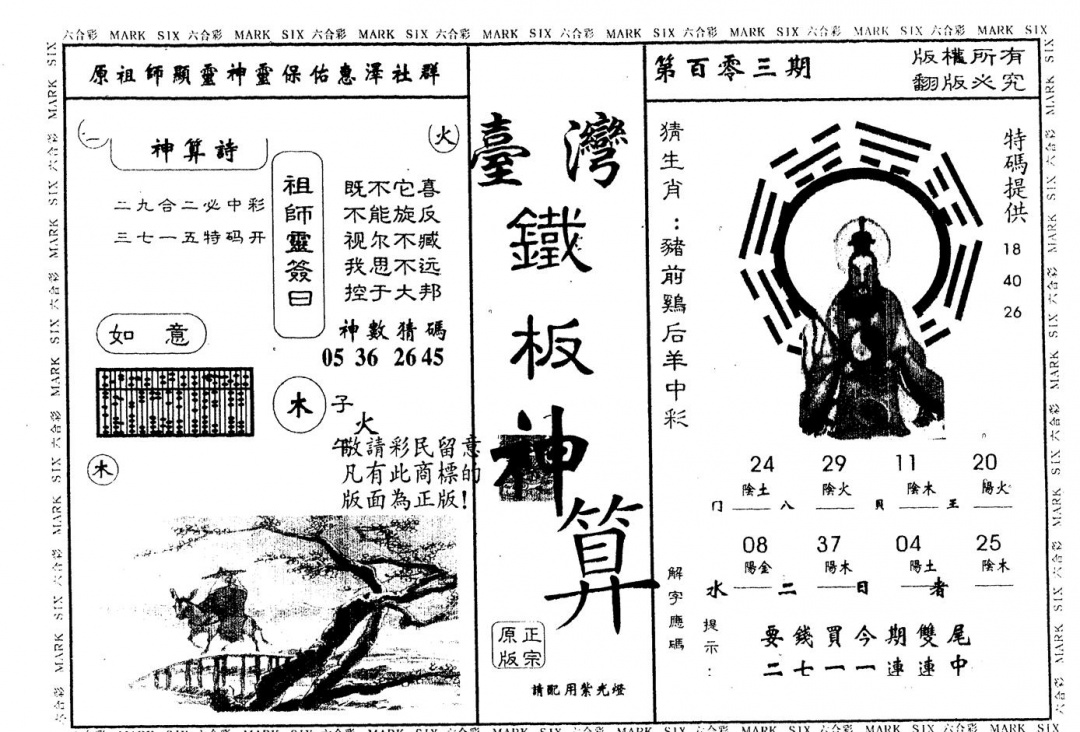 六合彩 MARK SIX 六合彩 MARK SIX 六合彩 MARK SIX 六合彩 MARK SIX 六合彩 MARK SIX 六合彩 MARK SIX 六合彩 MARK SIX 六合彩 MARK SIX
原祖師顯靈神靈保佑惠澤社群
火
神算詩
二九合二必中彩
三七一五特码开
祖師靈簽曰
既不它喜
不能旋反
视尔不臧
我思不远
控于大邦
神數猜碼
05 36 26 45
如意
木
子
火
午
木
敬請彩民留意
凡有此商標的
版面為正版!
臺灣
鐵
板
神
算
正宗
原版
請配用紫光燈
第百零三期
版權所有
翻版必究
猜生肖:豬前鷄后羊中彩
特碼提供
18
40
26
24 29 11 20
陰土 陰火 陰木 陽火
冂 八 貝 王
08 37 04 25
陽金 陽木 陽土 陰木
水 二 日 者
解字應碼
提示:
要錢買今期雙尾
二七一一連連中